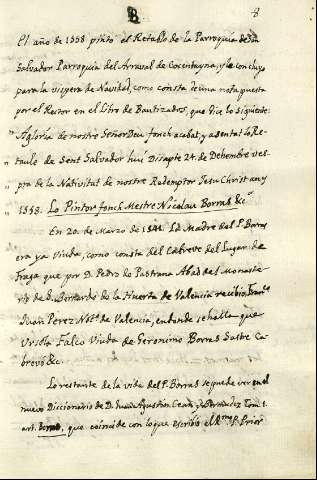 B
8
El año de 1558 pintó el Retablo de la Parroquia de Sn
Salvador Parroquia del Arraval de Cocentayna, y le concluyó
para la vispera de Navidad, como consta de una nota puesta
por el Retor en el Libro de Bautizados, que dice lo siguiente:
"A gloria de nostre Señor Deu fonch acabat, y asentat lo Re-
" taule de Sent Salvador hui Disapte 24 de Dehembre ves-
" pra de la Nativitat de nostre Redemptor Jesu Christ any
" 1558. Lo Pintor fonch Mestre Nicolau Borras &c
En 20 de Marzo de La Madre del P. Borras
era ya Viuda, como consta del Cabreve del Lugar de
Fraga que por D. Pedro de Pastrana Abad del Monaste-
rio de S. Bernardo de la Huerta de Valencia recibio Franco
Juan Perez Noto de Valencia, en donde se halla que
Ursola Falco Viuda de Geronimo Borras Sastre Ca-
brevó &c.
Lo restante de la vida del P. Borras se puede ver en el
nuevo Diccionario de D. Juan Agustin Cean y Bermudez Tom. 1.
art. Borras, que coincide con lo que escribió el Rmo P. Prior